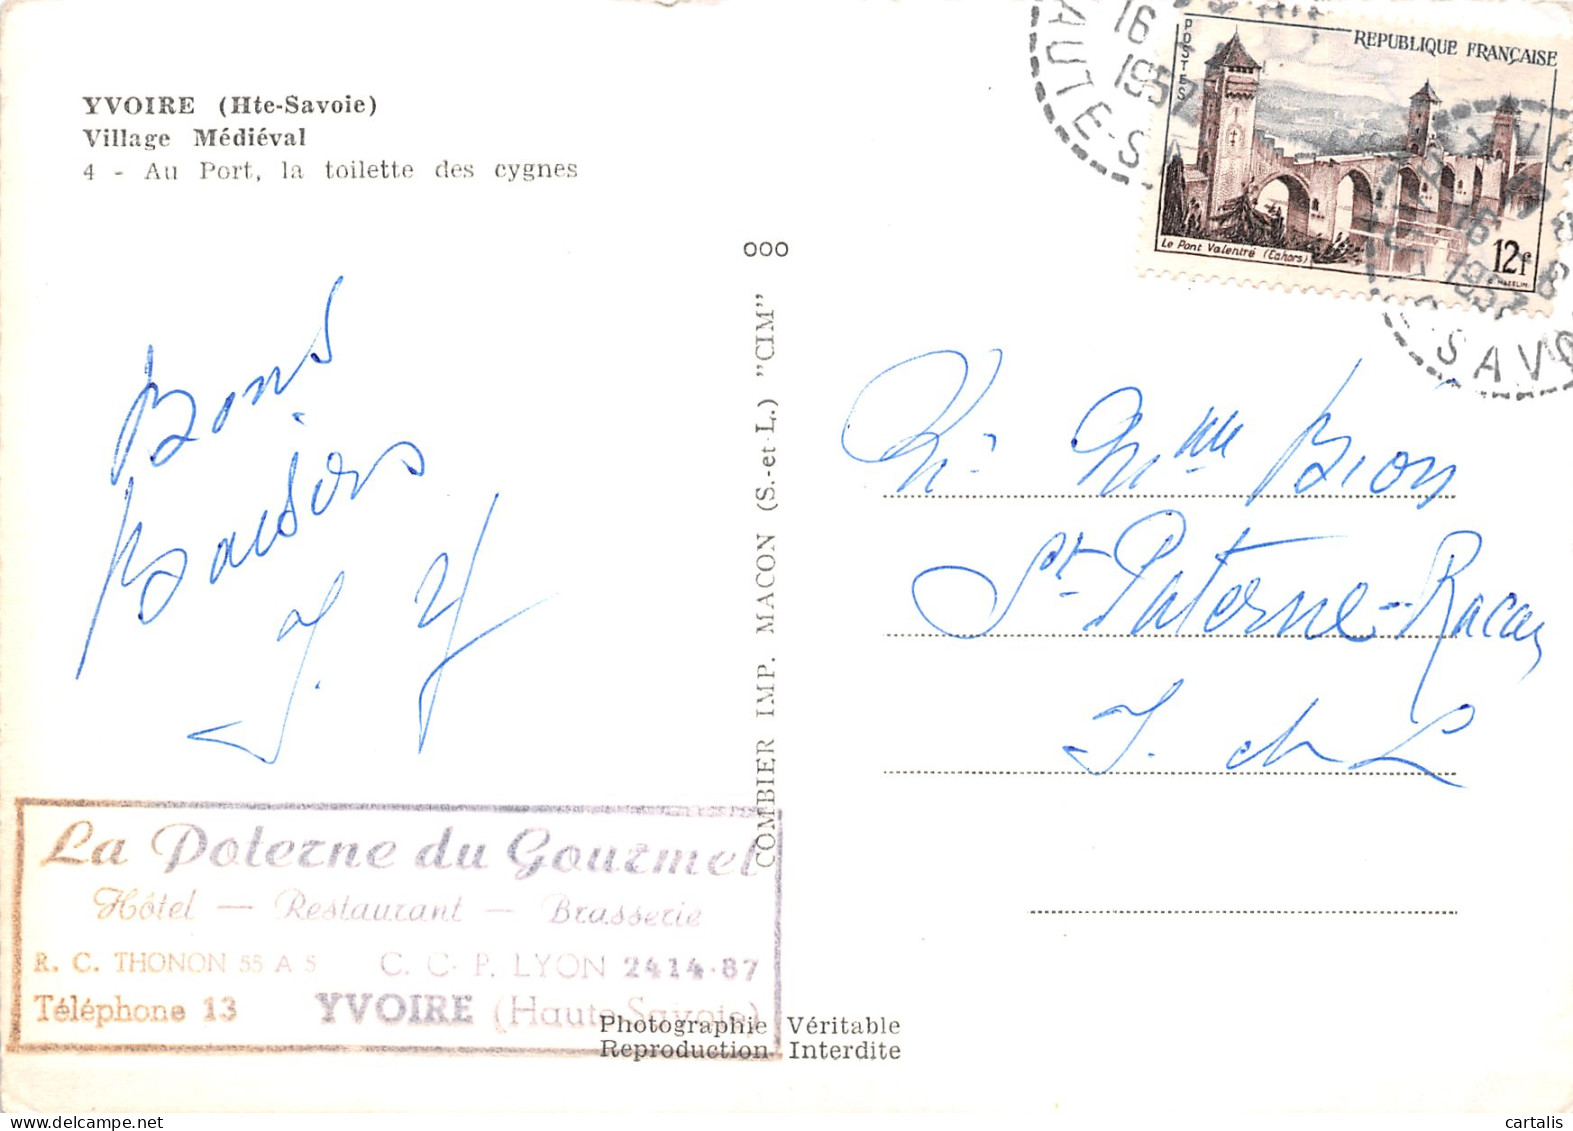 YVOIRE (Hte-Savoie)
Village Médiéval
4 - Au Port, la toilette des cygnes
000
COMBIER IMP. MACON (S.-et-L.) "CIM"
Bons
Baisers
J. Y
16
1957
HAUTE-S
POSTES
REPUBLIQUE FRANÇAISE
Le Pont Valentré (Cahors)
12f
16
1957
SAVO
Mr Mme Bion
St-Paterne-Racan
I. et L
La Poterne du Gourmet
Hôtel — Restaurant — Brasserie
R. C. THONON 55 A 5 C. C. P. LYON 2414-87
Téléphone 13 YVOIRE (Haute-Savoie)
Photographie Véritable
Reproduction Interdite
cartalis